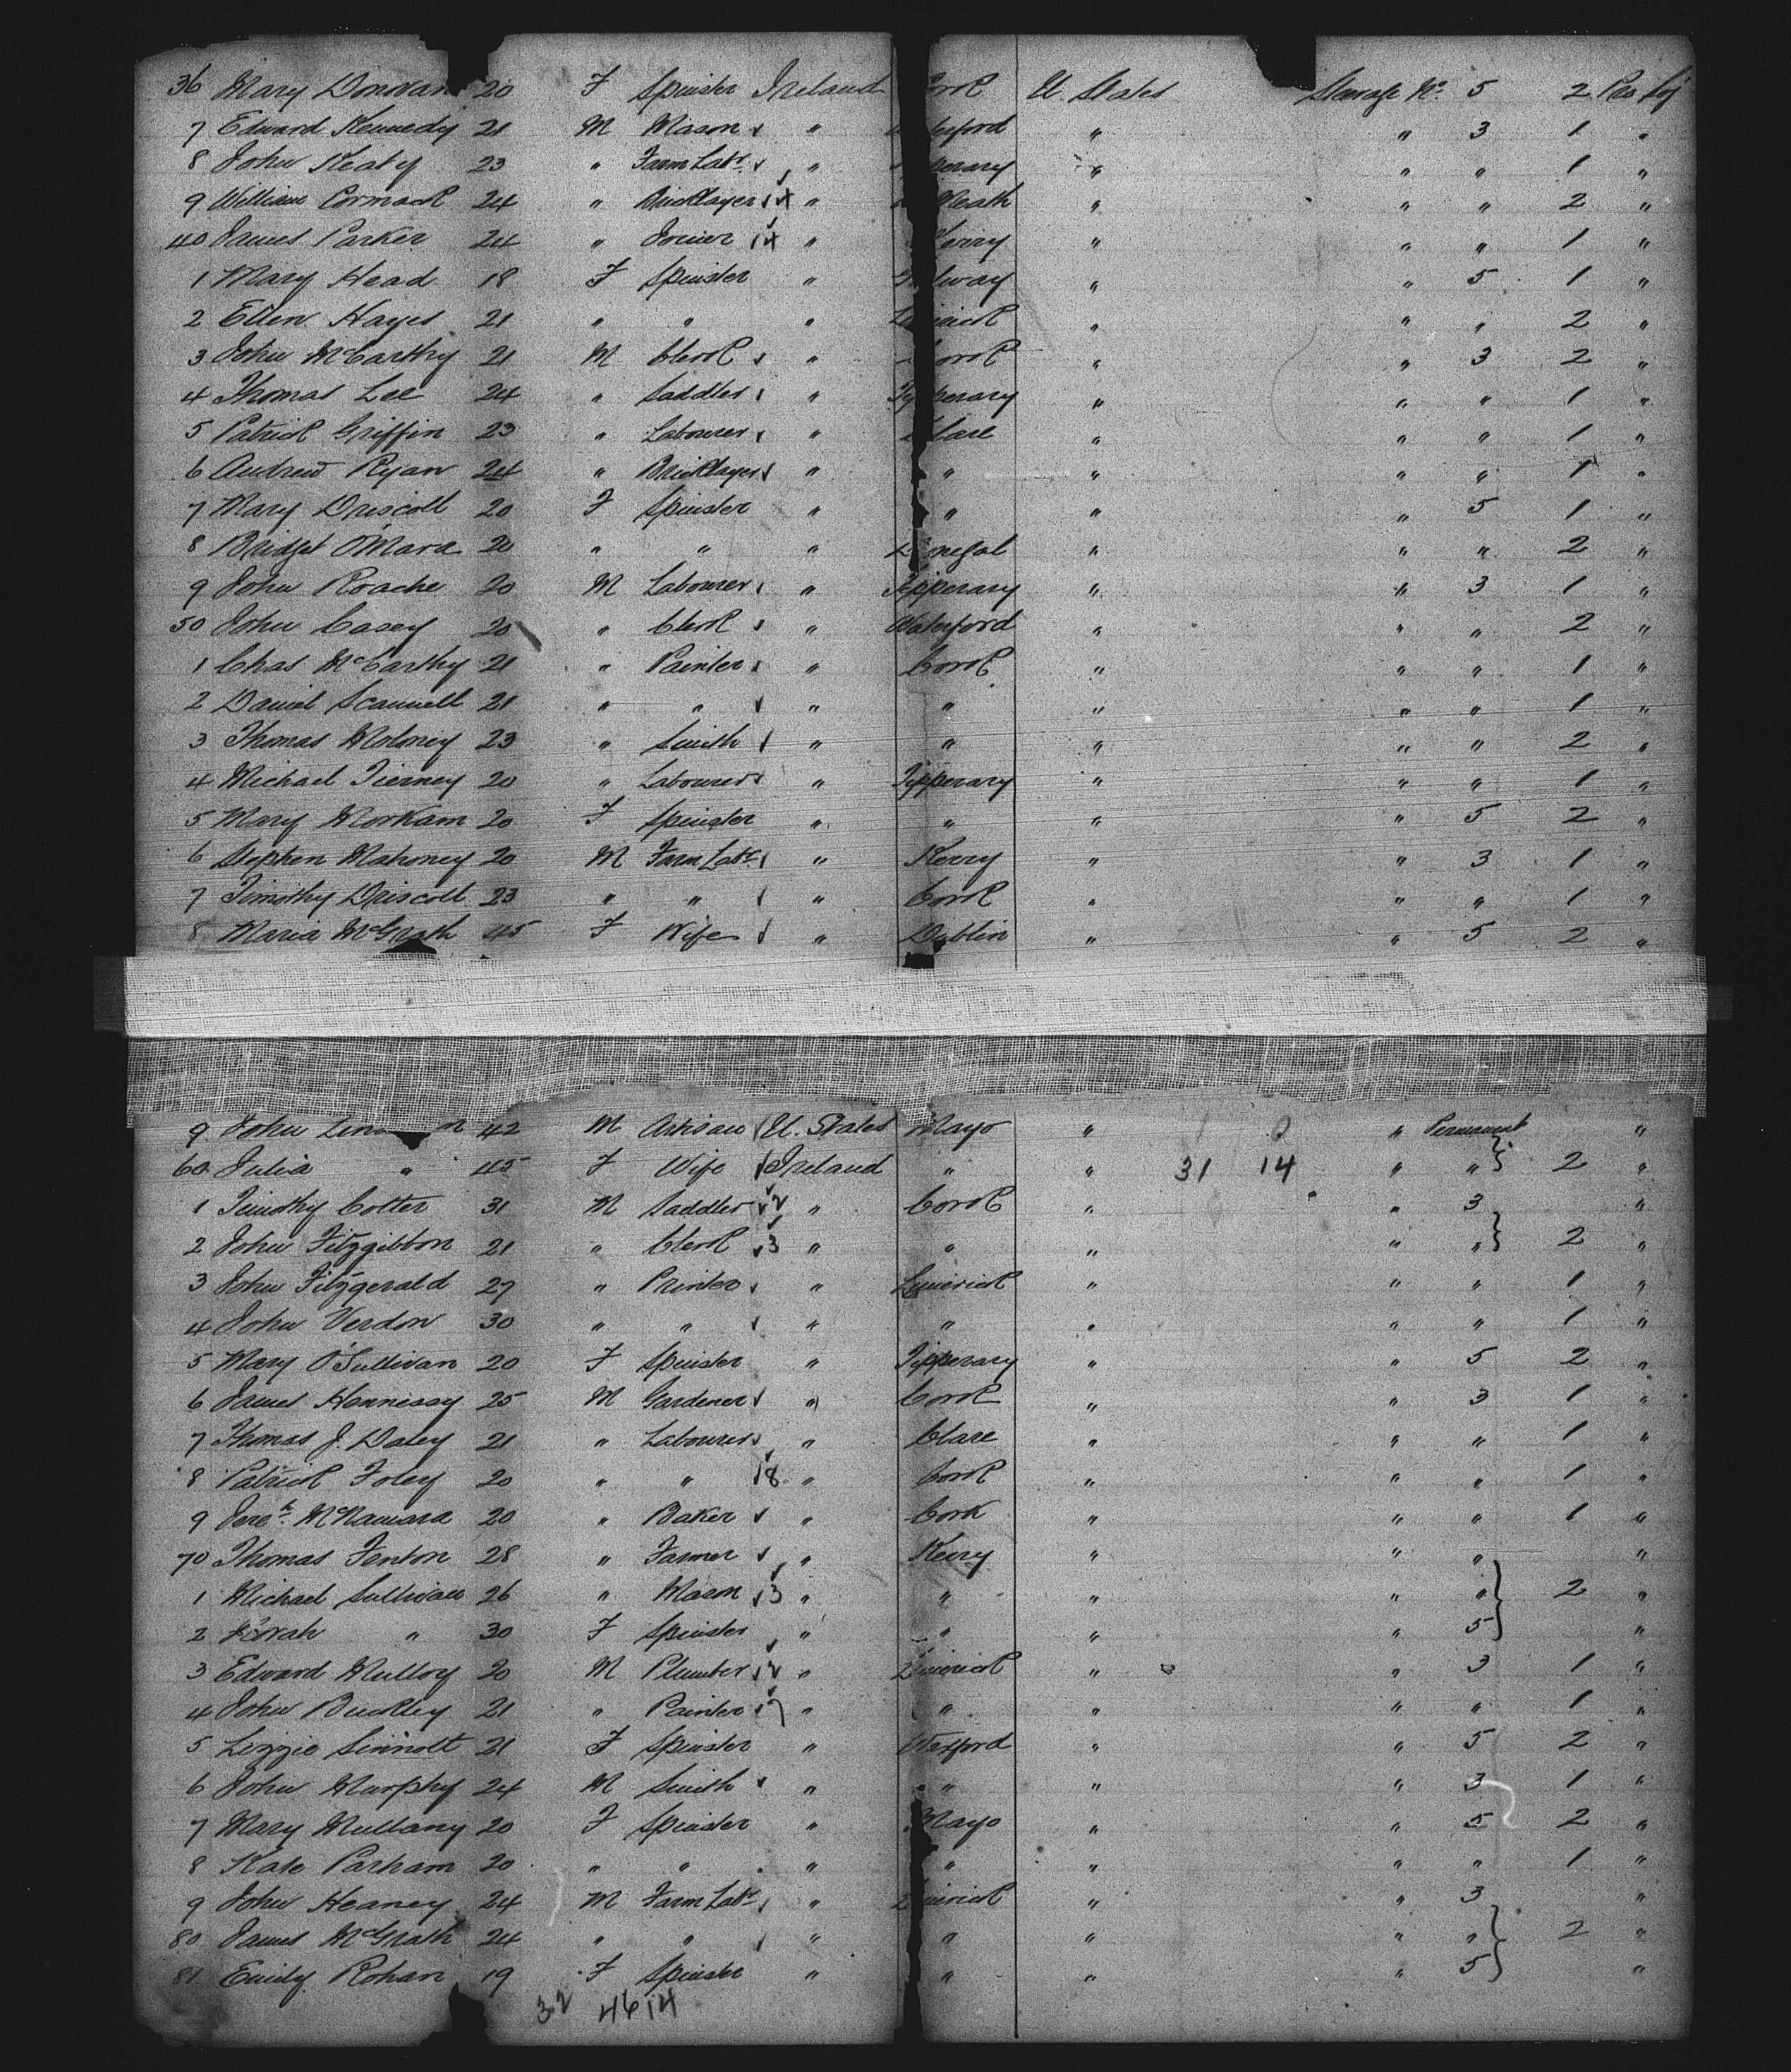 36 Mary Donovan 20 F Spinster Ireland U. States Steerage No. 5 2
7 Edward Kennedy 21 M Mason " " " 3 1 "
8 John Keaty 23 " Farm Labr. " " " " 1 "
9 William Cormack 24 " Bricklayer " " " " 2 "
40 James Parker 24 " Joiner " Kerry " " " 1 "
1 Mary Head 18 F Spinster " Galway " " 5 1 "
2 Ellen Hayes 21 " " " Limerick " " " 2 "
3 John McCarthy 21 M Clerk " Cork " " 3 2 "
4 Thomas Lee 24 " Saddler " Tipperary " " " 1 "
5 Patrick Griffin 23 " Labourer " Clare " " " 1 "
6 Andrew Ryan 24 " Bricklayer " " " " " 1 "
7 Mary Driscoll 20 F Spinster " " " " 5 1 "
8 Bridget O'Mara 20 " " " Donegal " " " 2 "
9 John Roache 20 M Labourer " Tipperary " " 3 1 "
50 John Casey 20 " Clerk " Waterford " " " 2 "
1 Chas McCarthy 21 " Painter " Cork " " " 1 "
2 Daniel Scannell 21 " " " " " " " 1 "
3 Thomas Moloney 23 " Smith " " " " " 2 "
4 Michael Tierney 20 " Labourer " Tipperary " " " 1 "
5 Mary Morkam 20 F Spinster " " " " 5 2 "
6 Stephen Mahoney 20 M Farm Labr. " Kerry " " 3 1 "
7 Timothy Driscoll 23 " " " Cork " " " 1 "
8 Maria McGrath 45 F Wife " Dublin " " 5 2 "
9 John 42 M Artisan U. States Mayo " " Permanent "
60 Julia " 45 F Wife Ireland " " 31 14 " " 2 "
1 Timothy Cotter 31 M Saddler 2 " Cork " " 3 "
2 John Fitzgibbon 21 " Clerk 3 " " " " " 2 "
3 John Fitzgerald 27 " Printer " Limerick " " " 1 "
4 John Verdon 30 " " " " " " " 1 "
5 Mary O'Sullivan 20 F Spinster " Tipperary " " 5 2 "
6 James Hennessy 25 M Gardener " Cork " " 3 1 "
7 Thomas J. Daley 21 " Labourer " Clare " " " 1 "
8 Patrick Foley 20 " " 8 " Cork " " " 1 "
9 Jereh. McNamara 20 " Baker " Cork " " " 1 "
70 Thomas Fenton 28 " Farmer " Kerry " " " "
1 Michael Sullivan 26 " Mason 3 " " " " " 2 "
2 Norah " 30 F Spinster " " " " 5 "
3 Edward Mulloy 20 M Plumber " Limerick " " 3 1 "
4 John Buckley 21 " Painter 7 " " " " " 1 "
5 Lizzie Sinnott 21 F Spinster " Wexford " " 5 2 "
6 John Murphy 24 M Smith " " " " 3 1 "
7 Mary Mullany 20 F Spinster " Mayo " " 5 2 "
8 Kate Parham 20 " " " " " " " 1 "
9 John Heaney 24 M Farm Labr. " Limerick " " 3 "
80 James McGrath 24 " " " " " " " 2 "
81 Emily Rohan 19 F Spinster " " " " 5 "
32 4614